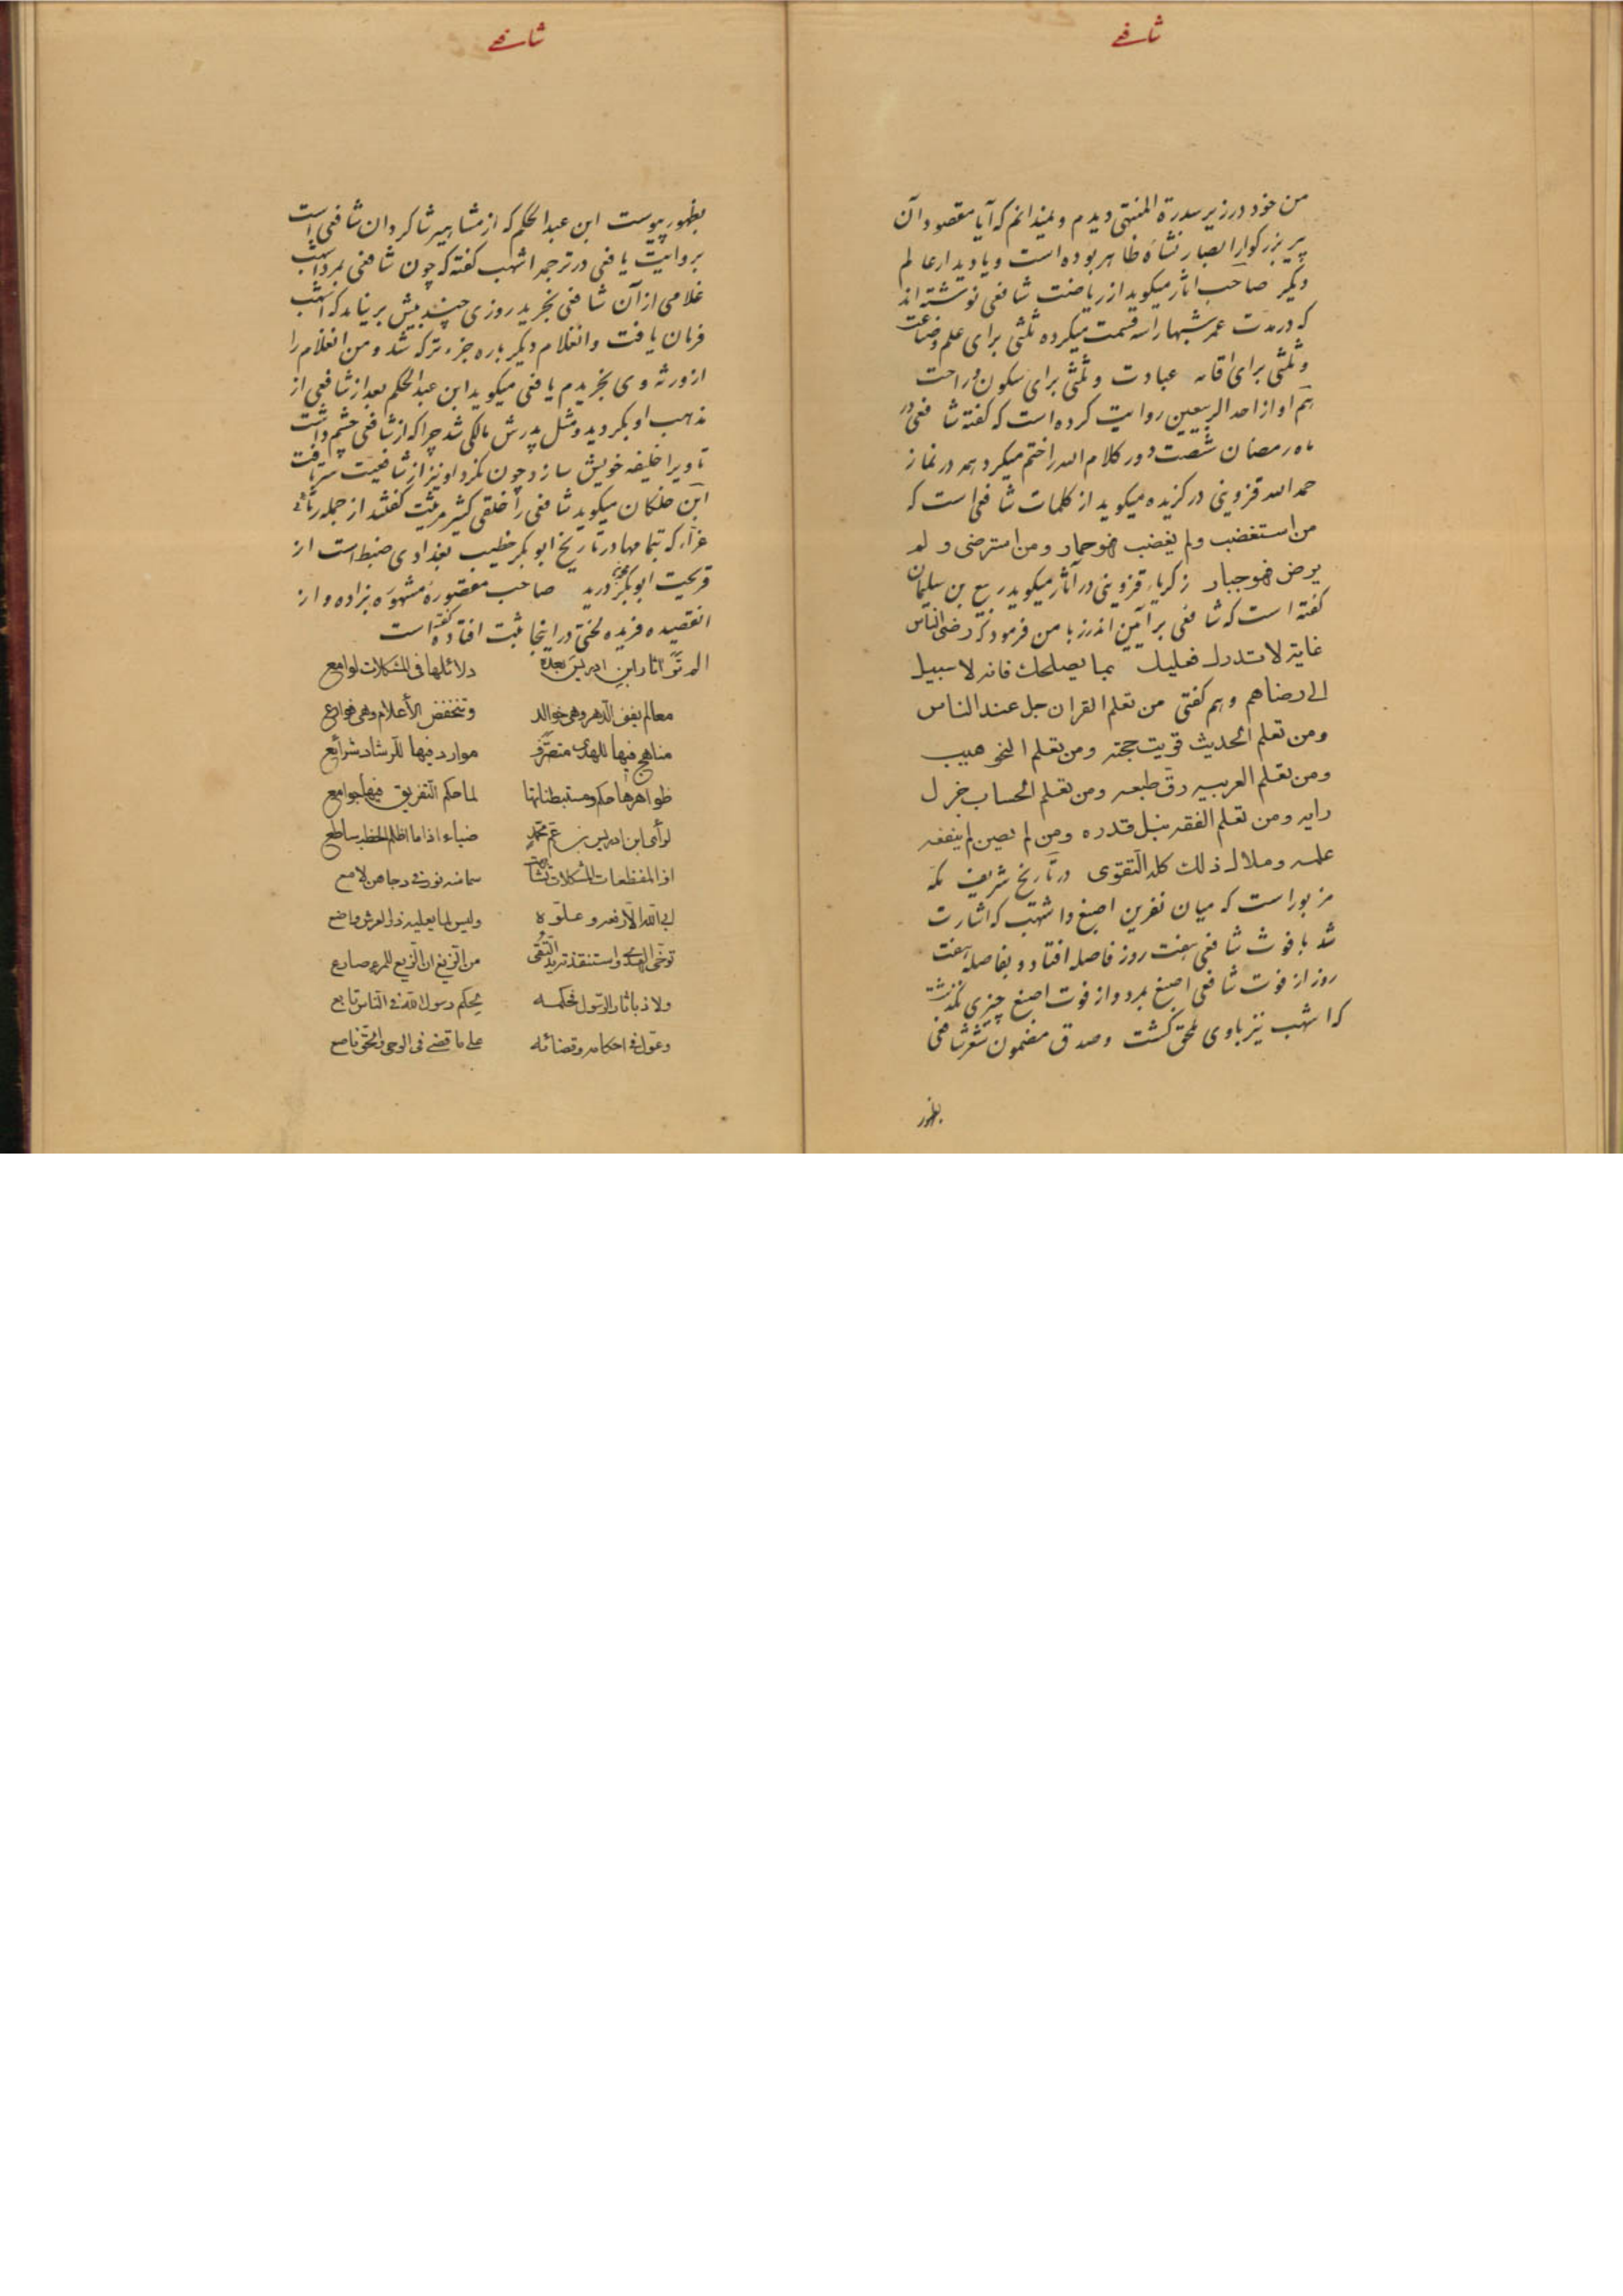 شافعے
من خود در زیر سدرة المنتهی دیدم و نمیدانم که آیا مقصود آن
پیر بزرکوار ابصار نشاه ظاهر بوده است و یا دیدار عالم
دیکر صاحب اثار میکوید از ریاضت شافعی نوشته اند
که در مدت عمر شبها را سه قسمت میکرده ثلثی برای علم و
و ثلثی برای اقامه عبادت و ثلثی برای سکون و راحت
هم او از احد الربیعین روایت کرده است که کفته شافعی در
ماه رمضان شصت دور کلام الله را ختم میکرد همه در نماز
حمد الله قزوینی در کزیده میکوید از کلمات شافعی است که
من استغضب ولم یغضب فهو حمار ومن استرضی و لم
یرض فهو جبار زکریاء قزوینی در آثار میکوید ربیع بن سلیمان
کفته است که شافعی بر آیین اندرز با من فرمود که رضی الناس
غایة لا تدرك فعلیك بما یصلحك فانه لا سبیل
الی رضاهم و هم کفتی من تعلم القران جل عند الناس
ومن تعلم الحدیث قویت حجته ومن تعلم النحو هیب
ومن تعلم العربیه رق طبعه ومن تعلم الحساب جزل
رایه ومن تعلم الفقه نبل قدره ومن لم یصن لم ینفعه
علمه وملاك ذلك کله التقوی در تاریخ شریف مکه
مزبور است که میان نفرین اصبغ و اشهب که اشارت
شد با فوت شافعی هفت روز فاصله افتاد و بفاصله هفت
روز از فوت شافعی اصبغ بمرد و از فوت اصبغ چیزی نکذشته
که اشهب نیز باوی ملحق کشت و صدق مضمون شعر شافعی
بظهور
شافعے
بظهور پیوست ابن عبد الحکم که از مشاهیر شاکردان شافعی است
بروایت یافعی در ترجمه اشهب کفته که چون شافعی بمرد اشهب
غلامی از آن شافعی بخرید روزی چند بیش بر نیامد که اشهب
فرمان یافت و انغلام دیکر باره جزء ترکه شد و من انغلام را
از ورثه وی بخریدم یافعی میکوید ابن عبد الحکم بعد از شافعی از
مذهب او بکردید و مثل پدرش مالکی شد چرا که از شافعی چشم داشت
تا ویرا خلیفه خویش سازد چون نکرد او نیز از شافعیت سر بتافت
ابن خلکان میکوید شافعی را خلقی کثیر مرثیت کفتند از جمله رثائی
غراء که تمامها در تاریخ ابو بکر خطیب بغدادی ضبط است از
قریحت ابو بکر بن درید صاحب مقصوره مشهوره بزاده و از
انقصیده فریده لختی در اینجا ثبت افتاد کفته است
الم تر آثار ابن ادریس بعده دلائلها فی المشکلات لوامع
معالم یفنی الدهر وهی خوالد وتنخفض الأعلام وهی فوارع
مناهج فیها للهدی متصرف موارد فیها للرشاد شرائع
ظواهرها حکم ومستبطناتها لما حکم التفریق فیها جوامع
لرأی ابن ادریس بن عم محمد ضیاء اذا ما اظلم الخطب ساطع
اذا المفظعات المشکلات تشابهت سما منه نور فی دجاهن لامع
ابی الله الا رفعه وعلوه ولیس لما یعلیه ذو العرش واضع
توخی الهدی واستنقذته ید التقی من الزیغ ان الزیغ للمرء صارع
ولاذ بآثار الرسول فحکمه لحکم رسول الله فی الناس تابع
وعول فی احکامه وقضائه علی ما قضی فی الوحی والحق ناصع